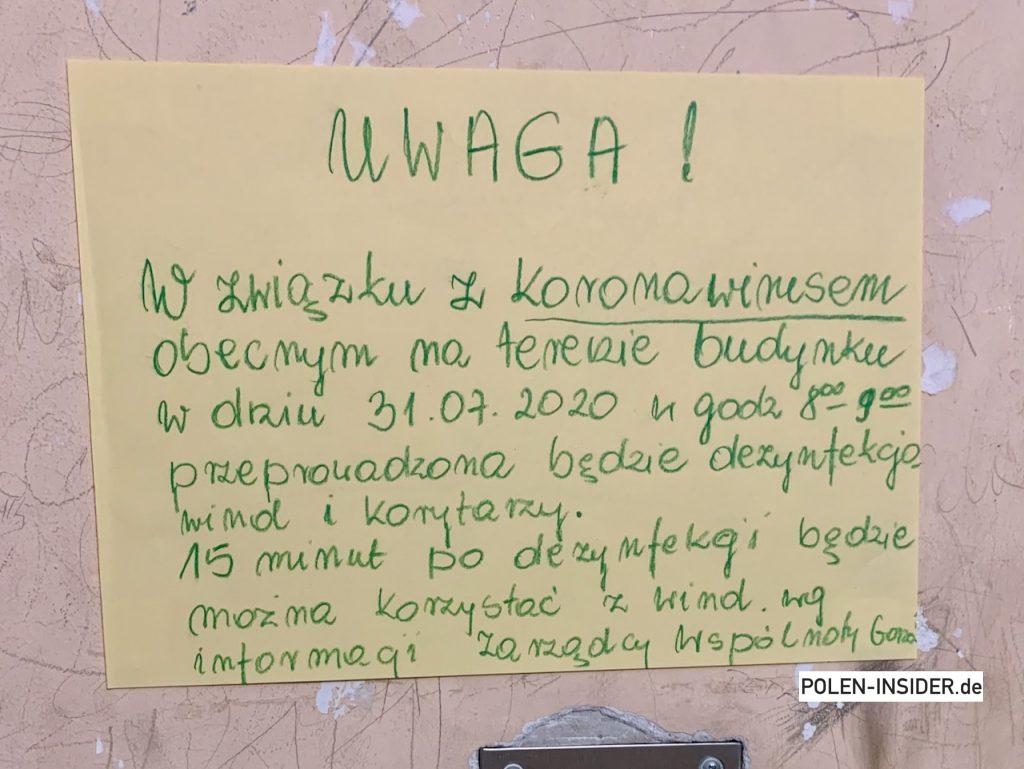 UWAGA !
W związku z koronawirusem
obecnym na terenie budynku
w dniu 31.07.2020 w godz 8⁰⁰-9⁰⁰
przeprowadzona będzie dezynfekcja
wind i korytarzy.
15 minut po dezynfekcji będzie
można korzystać z wind. wg
informacji Zarządcy Wspólnoty
POLEN-INSIDER.de